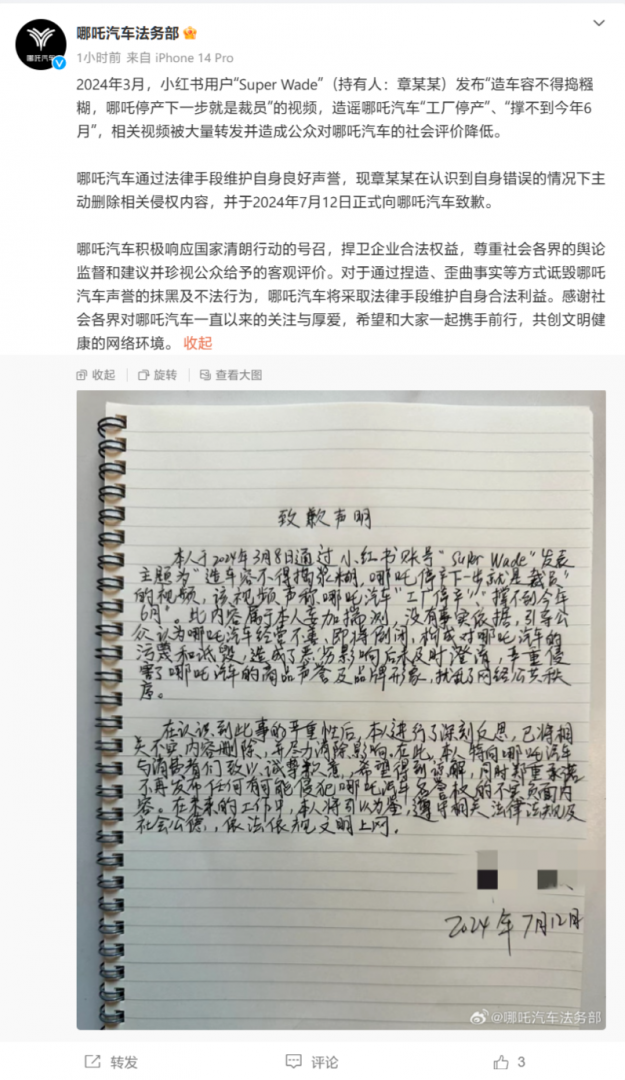 哪吒汽车法务部
1小时前 来自 iPhone 14 Pro
哪吒汽车
2024年3月，小红书用户“Super Wade”（持有人：章某某）发布“造车容不得捣糨
糊，哪吒停产下一步就是裁员”的视频，造谣哪吒汽车“工厂停产”、“撑不到今年6
月”，相关视频被大量转发并造成公众对哪吒汽车的社会评价降低。
哪吒汽车通过法律手段维护自身良好声誉，现章某某在认识到自身错误的情况下主
动删除相关侵权内容，并于2024年7月12日正式向哪吒汽车致歉。
哪吒汽车积极响应国家清朗行动的号召，捍卫企业合法权益，尊重社会各界的舆论
监督和建议并珍视公众给予的客观评价。对于通过捏造、歪曲事实等方式诋毁哪吒
汽车声誉的抹黑及不法行为，哪吒汽车将采取法律手段维护自身合法利益。感谢社
会各界对哪吒汽车一直以来的关注与厚爱，希望和大家一起携手前行，共创文明健
康的网络环境。 收起
收起 旋转 查看大图
致歉声明
本人于2024年3月8日通过小红书账号“Super Wade”发表
主题为“造车容不得捣浆糊，哪吒停产下一步就是裁员”
的视频，该视频声称哪吒汽车“工厂停产”、“撑不到今年
6月”。此内容属于本人妄加揣测，没有事实依据，引导公
众认为哪吒汽车经营不善，即将倒闭，构成对哪吒汽车的
污蔑和诋毁，造成了恶劣影响后未及时澄清，严重侵
害了哪吒汽车的商品声誉及品牌形象，扰乱了网络公共秩
序。
在认识到此事的严重性后，本人进行了深刻反思，已将相
关不实内容删除，并尽力消除影响。在此，本人特向哪吒汽车
与消费者们致以诚挚歉意，希望得到谅解，同时郑重承诺
不再发布任何有可能侵犯哪吒汽车名誉权的不实负面内
容。在未来的工作中，本人将引以为鉴，遵守相关法律法规及
社会公德，依法依规文明上网。
2024年7月12日
@哪吒汽车法务部
转发 评论 3